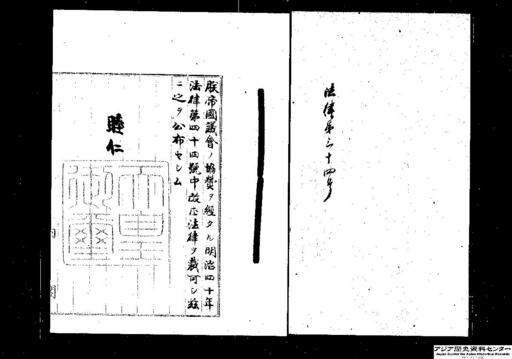 法律第三十四号
朕帝國議會ノ協賛ヲ經タル明治四十年
法律第四十四號中改正法律ヲ裁可シ玆
ニ之ヲ公布セシム
睦仁
天皇
御璽
内閣
アジア歴史資料センター
Japan Center for Asian Historical Records